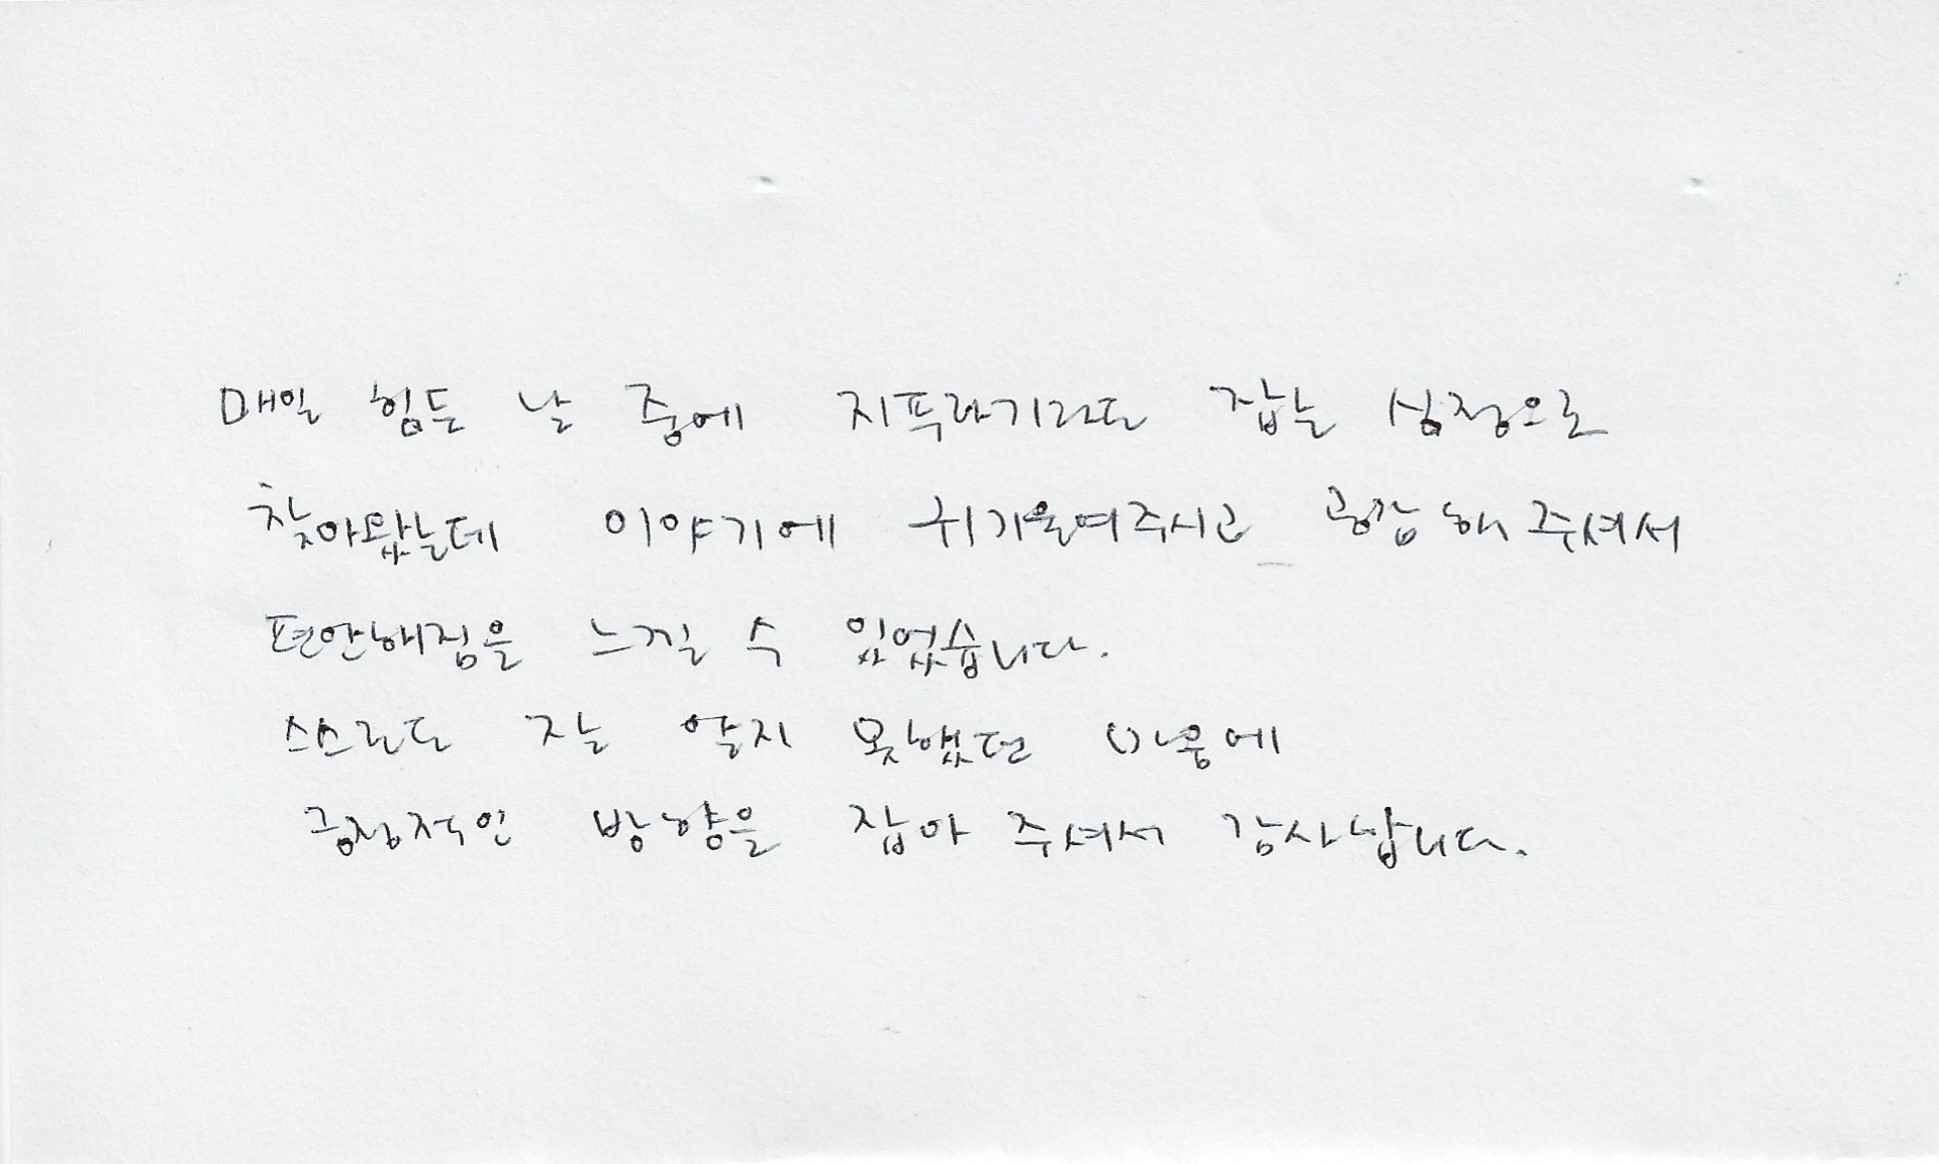 매일 힘든 날 중에 지푸라기라도 잡는 심정으로
찾아왔는데 이야기에 귀기울여주시고 공감해주셔서
편안해짐을 느낄 수 있었습니다.
스스로도 잘 알지 못했던 마음에
긍정적인 방향을 잡아 주셔서 감사합니다.